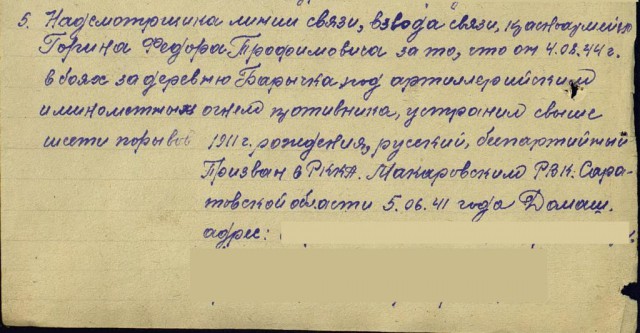 5. Надсмотрщика линии связи, взвода связи, красноармейца
Горина Федора Трофимовича за то, что он 4.08.44 г.
в боях за деревню Барычка, под артиллерийским
и минометным огнем противника, устранил свыше
шести порывов 1911 г. рождения, русский, беспартийный
Призван в РККА. Макаровским РВК. Сара-
товской области 5.06.41 года Домаш.
адрес: